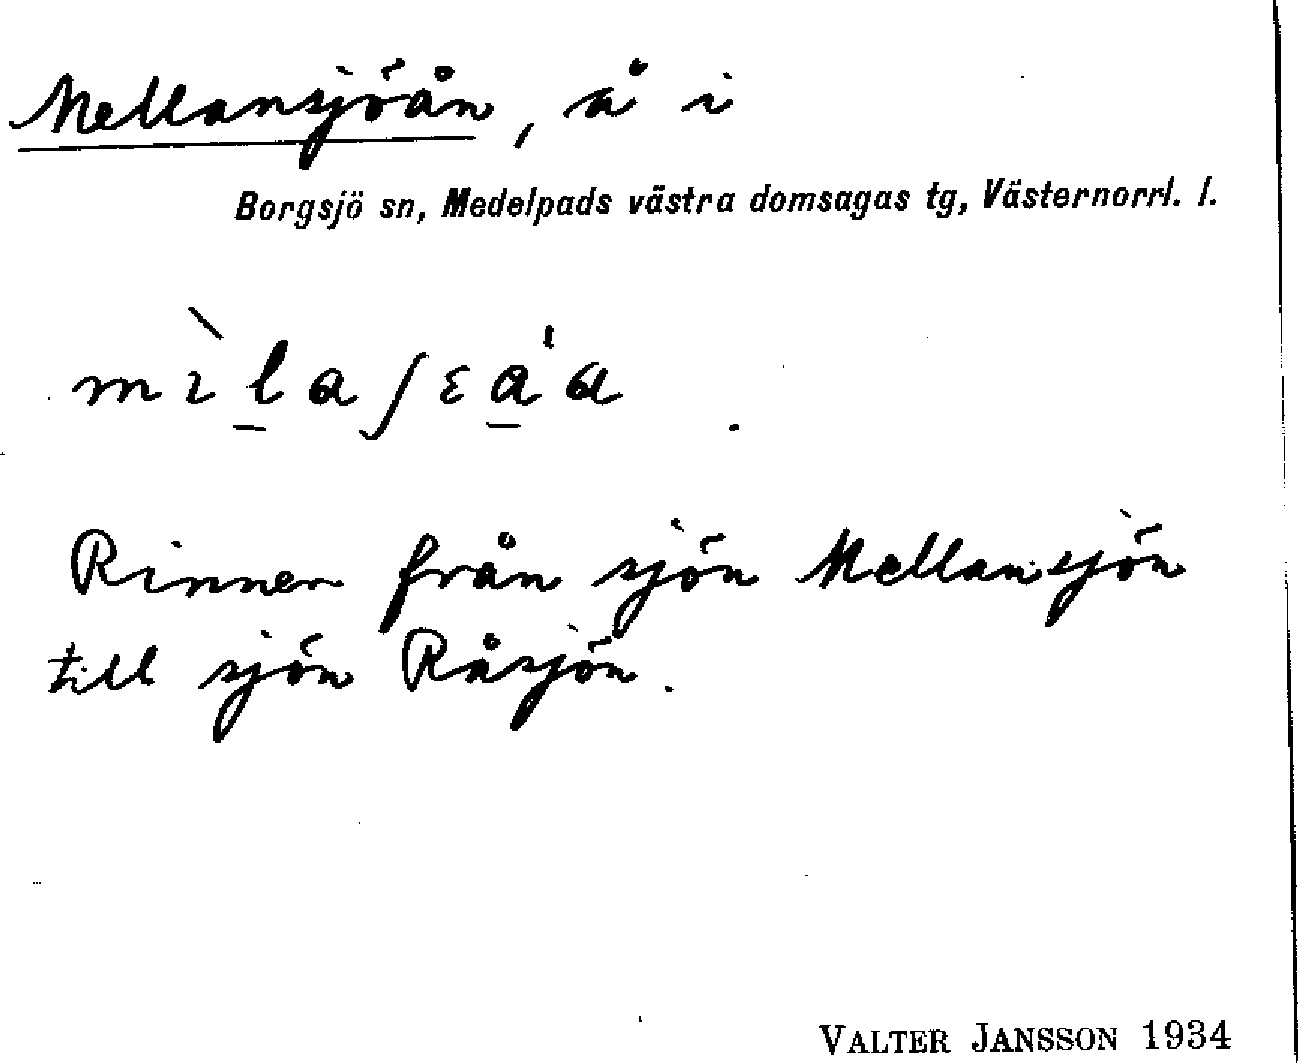 Mellansjöån, å i
Borgsjö sn, Medelpads västra domsagas tg, Västernorrl. l.
mɪ̀l̠aʃɛa̠'a
Rinner från sjön Mellansjön
till sjön Råsjön.
VALTER JANSSON 1934